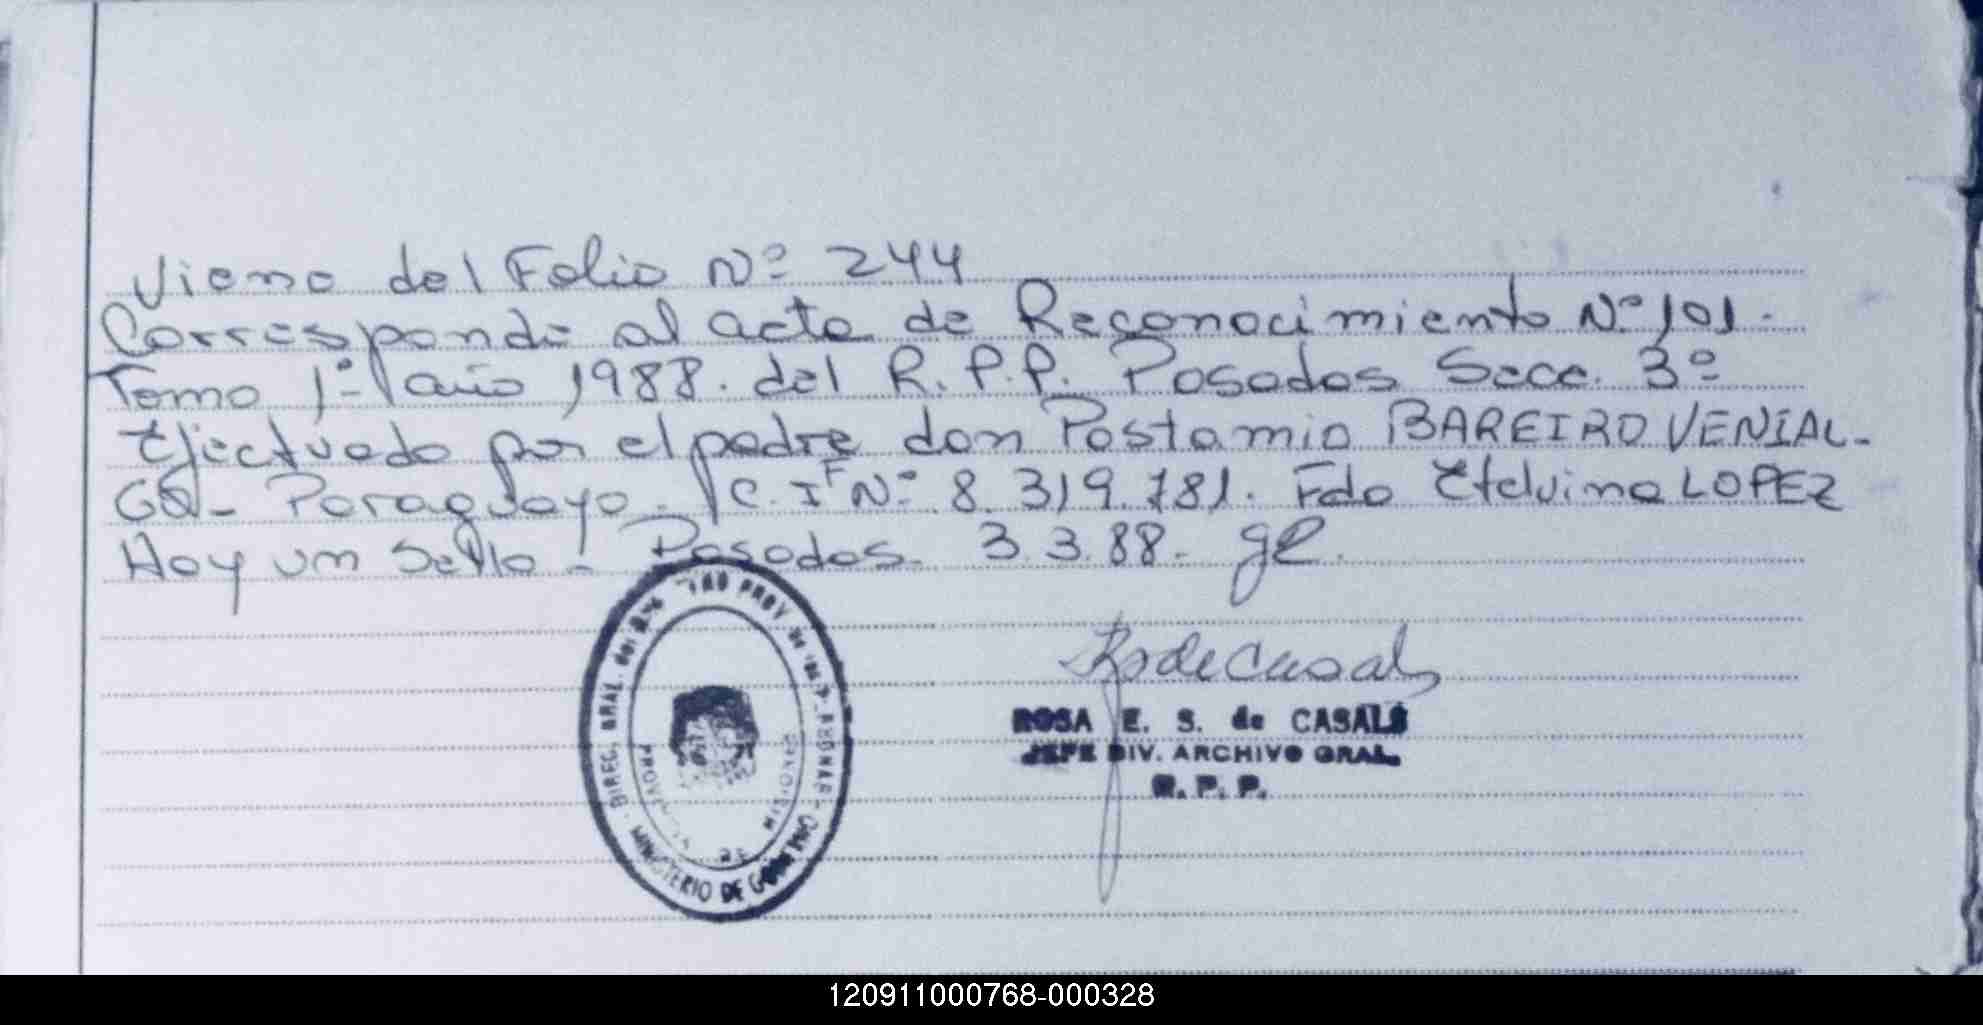 Viene del Folio Nº 244
Corresponde al acta de Reconocimiento Nº 101.
Tomo 1º año 1988. del R.P.P. Posadas Secc. 3º
Efectuado por el padre don Postamio BAREIRO VENIAL-
GO- Paraguayo- C.IF Nº 8.319.781. Fdo Etelvina LOPEZ
Hay un Sello- Posadas. 3.3.88- ge.
RodeCasals
ROSA E. S. de CASALS
JEFE DIV. ARCHIVO GRAL.
R. P. P.
DIREC. GRAL. del PROV. de las PERSONAS
MINISTERIO DE GOBIERNO
PROVINCIA DE MISIONES
120911000768-000328